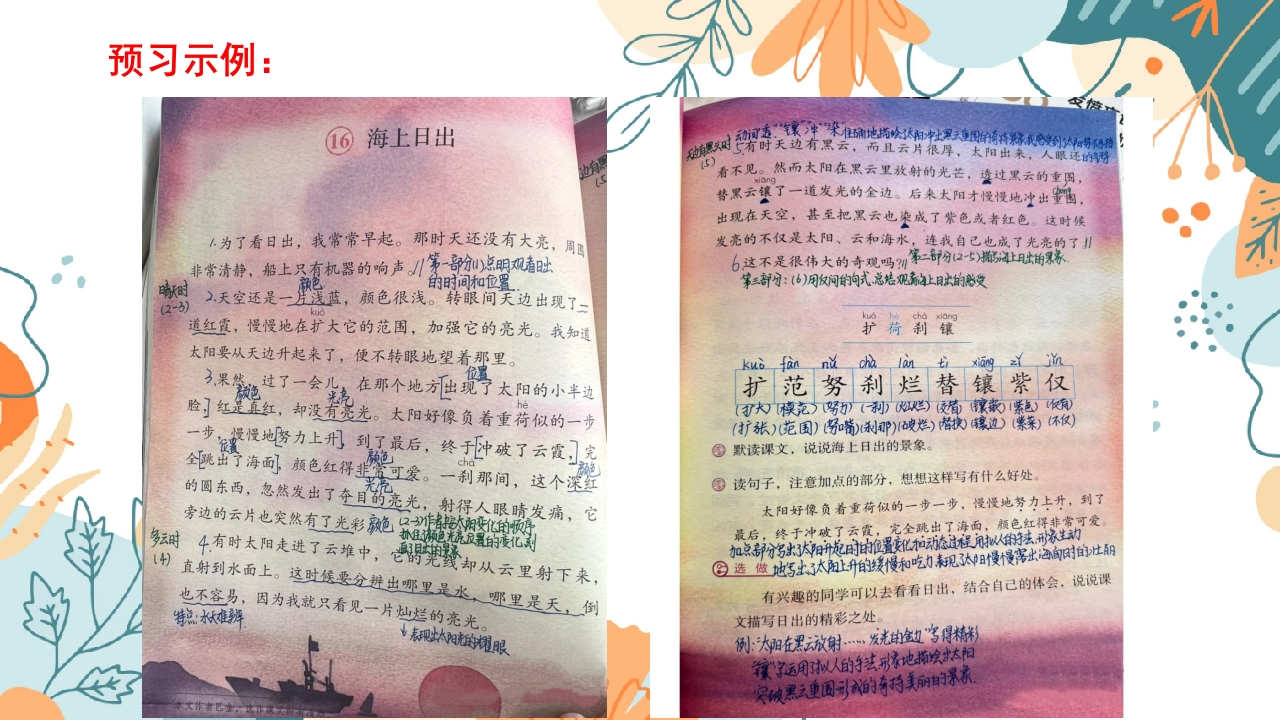 预习示例：
16 海上日出
1.为了看日出，我常常早起。那时天还没有大亮，周围
非常清静，船上只有机器的响声。//
第一部分(1)点明观看日出
的时间和位置
颜色
晴朗时
(2-3)
2.天空还是一片浅蓝，颜色很浅。转眼间天边出现了一
kuó
道红霞，慢慢地在扩大它的范围，加强它的亮光。我知道
太阳要从天边升起来了，便不转眼地望着那里。
位置
3.果然，过了一会儿，在那个地方[出现了太阳的小半边
颜色 光亮 hè
脸，]红是真红，却没有亮光。太阳好像负着重荷似的一步
一步，慢慢地[努力上升]，到了最后，终于[冲破了云霞，]完
位置 颜色
全[跳出了海面]，颜色红得非常可爱。一刹那间，这个深红
chà 颜色
光亮
的圆东西，忽然发出了夺目的亮光，射得人眼睛发痛，它
旁边的云片也突然有了光彩。
颜色
多云时
(4)
4.有时太阳走进了云堆中，它的光线却从云里射下来，
直射到水面上。这时候要分辨出哪里是水，哪里是天，倒
也不容易，因为我就只看见一片灿烂的亮光。
特点:水天难辨
表现出太阳光的耀眼
天边有黑云时
(5)
5.有时天边有黑云，而且云片很厚，太阳出来，人眼还
看不见。然而太阳在黑云里放射的光芒，透过黑云的重围，
xiāng
替黑云镶了一道发光的金边。后来太阳才慢慢地冲出重围，
chóng
出现在天空，甚至把黑云也染成了紫色或者红色。这时候
发亮的不仅是太阳、云和海水，连我自己也成了光亮的了。//
6这不是很伟大的奇观吗?//
第二部分(2-5)描写海上日出的景象.
第三部分：(6)用反问的句式,总结观看海上日出的感受
kuò hè chà xiāng
扩 荷 刹 镶
kuò fàn nǔ chà làn tì xiāng zǐ jǐn
扩 范 努 刹 烂 替 镶 紫 仅
(扩大)(模范)(努力)(一刹)(灿烂)(镶嵌)(紫色)(仅有)
(扩张)(范围)(努嘴)(刹那)(破烂)(替换)(镶边)(紫菜)(不仅)
默读课文，说说海上日出的景象。
读句子，注意加点的部分，想想这样写有什么好处。
太阳好像负着重荷似的一步一步，慢慢地努力上升，到了
最后，终于冲破了云霞，完全跳出了海面，颜色红得非常可爱。
加点部分写出了太阳升起时的位置变化和动态过程,用拟人的手法,形象生动
地写出了太阳上升的缓慢和吃力,表现了太阳慢慢露出海面时的壮丽
选做
有兴趣的同学可以去看看日出，结合自己的体会，说说课
文描写日出的精彩之处。
例:"太阳在黑云放射……发光的金边"写得精彩
"镶"字运用了拟人的手法,形象地描绘出太阳
突破黑云重围形成的奇特美丽的景象.